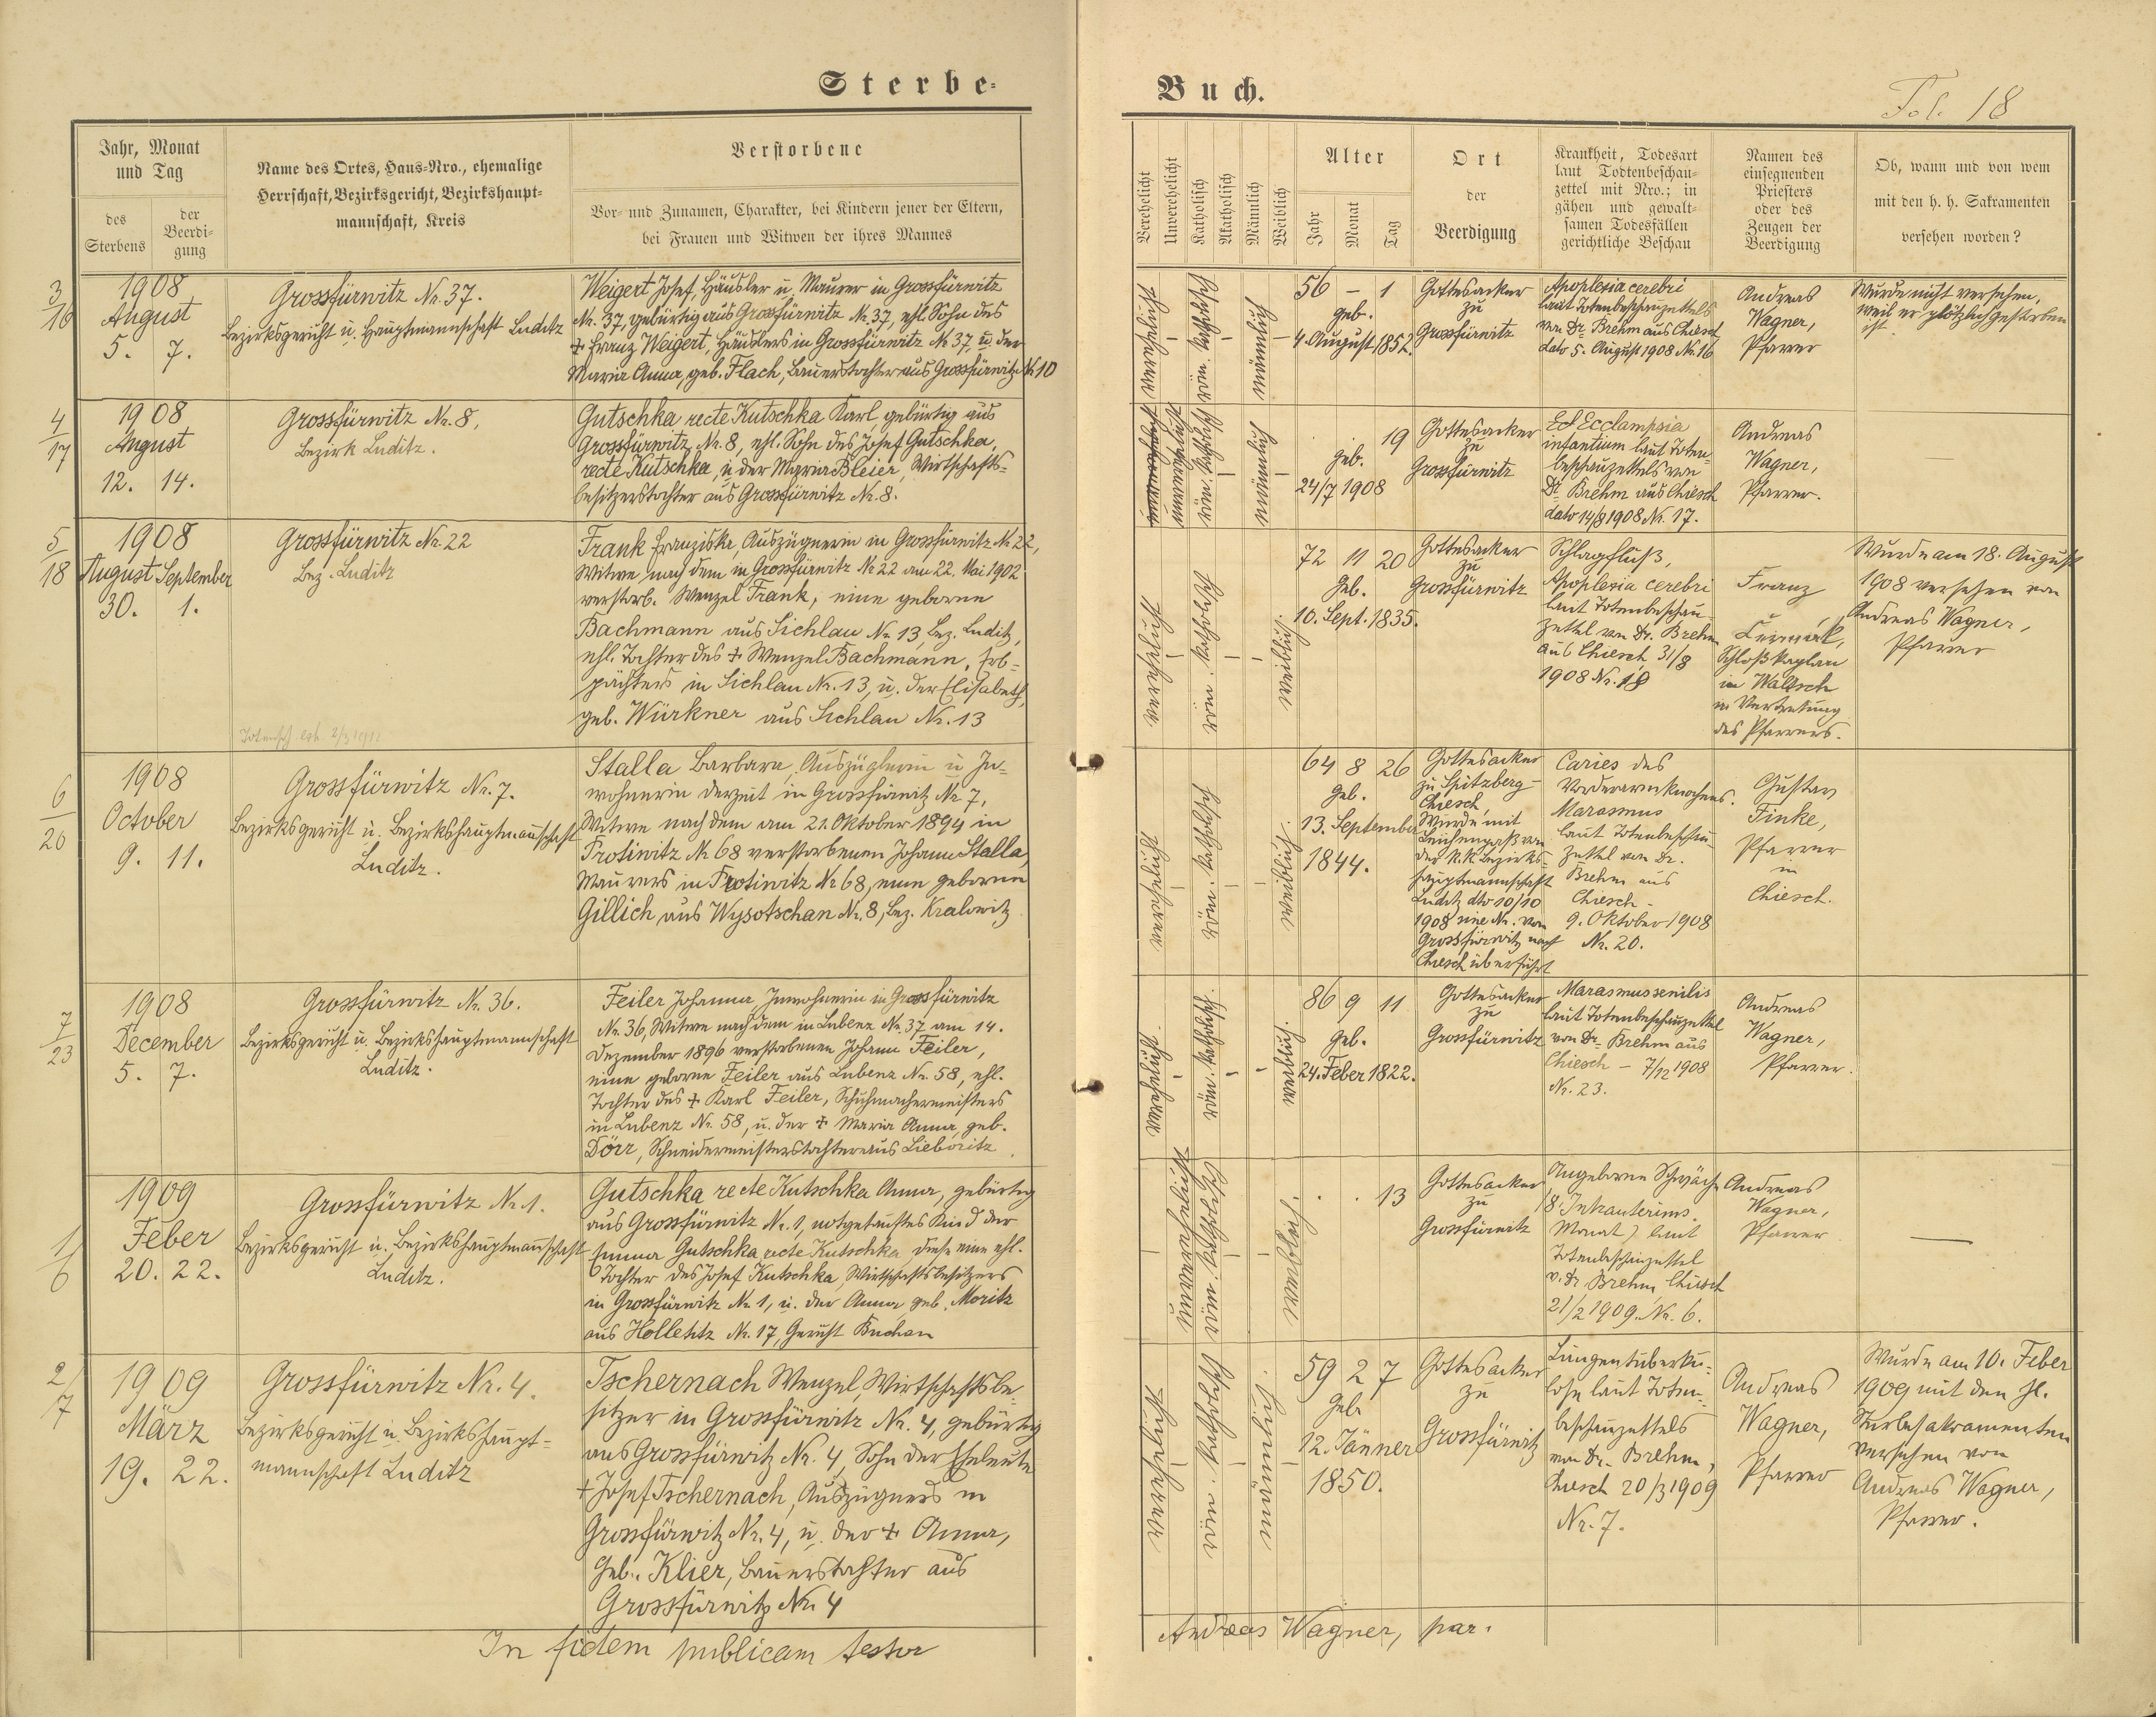 Sterbe-
Buch.
Fol. 18
Jahr, Monat
und Tag
des
Sterbens
der
Beerdi-
gung
Name des Ortes, Haus-Nro., ehemalige
Herrschaft, Bezirksgericht, Bezirkshaupt-
mannschaft, Kreis
Verstorbene
Vor- und Zunamen, Charakter, bei Kindern jener der Eltern,
bei Frauen und Witwen der ihres Mannes
Verehelicht
Unverehelicht
Katholisch
Akatholisch
Männlich
Weiblich
Alter
Jahr
Monat
Tag
Ort
der
Beerdigung
Krankheit, Todesart
laut Todtenbeschau-
zettel mit Nro.; in
gähen und gewalt-
samen Todesfällen
gerichtliche Beschau
Namen des
einsegnenden
Priesters
oder des
Zeugen der
Beerdigung
Ob, wann und von wem
mit den h. h. Sakramenten
versehen worden?
3/16
1908
August
5. 7.
Grossfürwitz Nr. 37.
Bezirksgericht u. Hauptmannschaft Luditz
Weigert Josef, Häusler u. Maurer in Grossfürwitz
Nr. 37, gebürtig aus Grossfürwitz Nr. 37, ehl. Sohn des
+ Franz Weigert, Häuslers in Grossfürwitz Nr. 37 u. der
Maria Anna, geb. Flach, Bauerstochter aus Grossfürwitz Nr. 10
verehelicht
röm. katholisch
männlich
56 – 1
geb.
4. August 1852.
Gottesacker
zu
Grossfürwitz
Apoplexia cerebri
laut Totenbeschauzettels
von Dr. Brehm aus Chiesch
dato 5. August 1908 Nr. 16
Andreas
Wagner,
Pfarrer
Wurde nicht versehen,
weil er plötzlich gestorben
ist.
4/17
1908
August
12. 14.
Grossfürwitz Nr. 8,
Bezirk Luditz.
Gutschka recte Kutschka Karl, gebürtig aus
Grossfürwitz Nr. 8, ehl. Sohn des Josef Gutschka,
recte Kutschka, u. der Maria Bleier, Wirtschafts-
besitzerstochter aus Grossfürwitz Nr. 8.
unverehelicht
röm. katholisch
männlich
19
geb.
24/7 1908
Gottesacker
zu
Grossfürwitz
Ecclampsia
infantium laut Toten-
beschauzettels von
Dr. Brehm aus Chiesch
dato 14/8 1908 Nr. 17.
Andreas
Wagner,
Pfarrer.
5/18
1908
August September
30. 1.
Grossfürwitz Nr. 22
Bez. Luditz
Frank Franziska, Auszüglerin in Grossfürwitz Nr. 22,
Witwe nach dem in Grossfürwitz Nr. 22 am 22. Mai 1902
verstorb. Wenzel Frank, eine geborne
Bachmann aus Sichlau Nr. 13, Bez. Luditz,
ehl. Tochter des + Wenzel Bachmann, Erb-
pächters in Sichlau Nr. 13, u. der Elisabeth,
geb. Würkner aus Sichlau Nr. 13
verehelicht
röm. katholisch
weiblich
72 11 20
Geb.
10. Sept. 1835.
Gottesacker
zu
Grossfürwitz
Schlagfluß,
Apoplexia cerebri
laut Totenbeschau-
zettel von Dr. Brehm
aus Chiesch, 31/8
1908 Nr. 18
Franz
Schloßkaplan
in Waltsch
in Vertretung
des Pfarrers.
Wurde am 18. August
1908 versehen von
Andreas Wagner,
Pfarrer
6/20
1908
October
9. 11.
Grossfürwitz Nr. 7.
Bezirksgericht u. Bezirkshauptmannschaft
Luditz.
Stalla Barbara, Auszüglerin u. In-
wohnerin derzeit in Grossfürwitz Nr. 7,
Witwe nach dem am 21. Oktober 1894 in
Protiwitz Nr. 68 verstorbenen Johann Stalla,
Maurers in Protiwitz Nr. 68, eine geborene
Gillich aus Wysotschan Nr. 8, Bez. Kralowitz
verehelicht
röm. katholisch
weiblich.
64 8 26
geb.
13. September
1844.
Gottesacker
zu Spitzberg-
Chiesch,
Wurde mit
Leichenpaß von
der k.k. Bezirks-
hauptmannschaft
Luditz dto 10/10
1908 sine Nr. von
Grossfürwitz nach
Chiesch überführt
Caries des
Vorderarmknochens.
Marasmus
laut Totenbeschau-
zettel von Dr.
Brehm aus
Chiesch -
9. Oktober 1908
Nr. 20.
Gustav
Finke,
Pfarrer
in
Chiesch.
7/23
1908
December
5. 7.
Grossfürwitz Nr. 36.
Bezirksgericht u. Bezirkshauptmannschaft
Luditz.
Feiler Johanna, Inwohnerin in Grossfürwitz
Nr. 36, Witwe nach dem in Lubenz Nr. 37 am 14.
Dezember 1896 verstorbenen Johann Feiler,
eine geborne Feiler aus Lubenz Nr. 58, ehl.
Tochter des + Karl Feiler, Schuhmachermeisters
in Lubenz Nr. 58, u. der + Maria Anna, geb.
Dörr, Schneidermeisterstochter aus Lieboritz.
verehelicht
röm. katholisch.
weiblich.
86 9 11
geb.
24. Feber 1822.
Gottesacker
zu
Grossfürwitz
Marasmus senilis
laut Totenbeschauzettel
von Dr. Brehm aus
Chiesch – 7/12 1908
Nr. 23.
Andreas
Wagner,
Pfarrer.
1/6
1909
Feber
20. 22.
Grossfürwitz Nr. 1.
Bezirksgericht u. Bezirkshauptmannschaft
Luditz.
Gutschka recte Kutschka Anna, gebürtig
aus Grossfürwitz Nr. 1, notgetauftes Kind der
Emma Gutschka recte Kutschka, diese eine ehl.
Tochter des Josef Kutschka, Wirtschaftsbesitzers
in Grossfürwitz Nr. 1, u. der Anna geb. Moritz
aus Holletitz Nr. 17, Gericht Buchau
unverehelicht
röm. katholisch
weiblich.
13
Gottesacker
zu
Grossfürwitz
Angeborene Schwäche
(8. Intrauterims.
Monat) laut
Totenbeschauzettel
v. Dr. Brehm, Chiesch
21/2 1909. Nr. 6.
Andreas
Wagner,
Pfarrer
2/7
1909
März
19. 22.
Grossfürwitz Nr. 4.
Bezirksgericht u. Bezirkshaupt-
mannschaft Luditz
Tschernach Wenzel, Wirtschaftsbe-
sitzer in Grossfürwitz Nr. 4, gebürtig
aus Grossfürwitz Nr. 4, Sohn der Eheleute
+ Josef Tschernach, Auszüglers in
Grossfürwitz Nr. 4, u. der + Anna,
geb. Klier, Bauerstochter aus
Grossfürwitz Nr. 4
verehelicht
röm. katholisch
männlich.
59 2 7
geb.
12. Jänner
1850.
Gottesacker
zu
Grossfürwitz
Lungentuberku-
lose laut Toten-
beschauzettels
von Dr. Brehm,
Chiesch 20/3 1909
Nr. 7.
Andreas
Wagner,
Pfarrer
Wurde am 10. Feber
1909 mit den hl.
Sterbesakramenten
versehen von
Andreas Wagner,
Pfarrer.
In fidem publicam testor
Andreas Wagner, par.